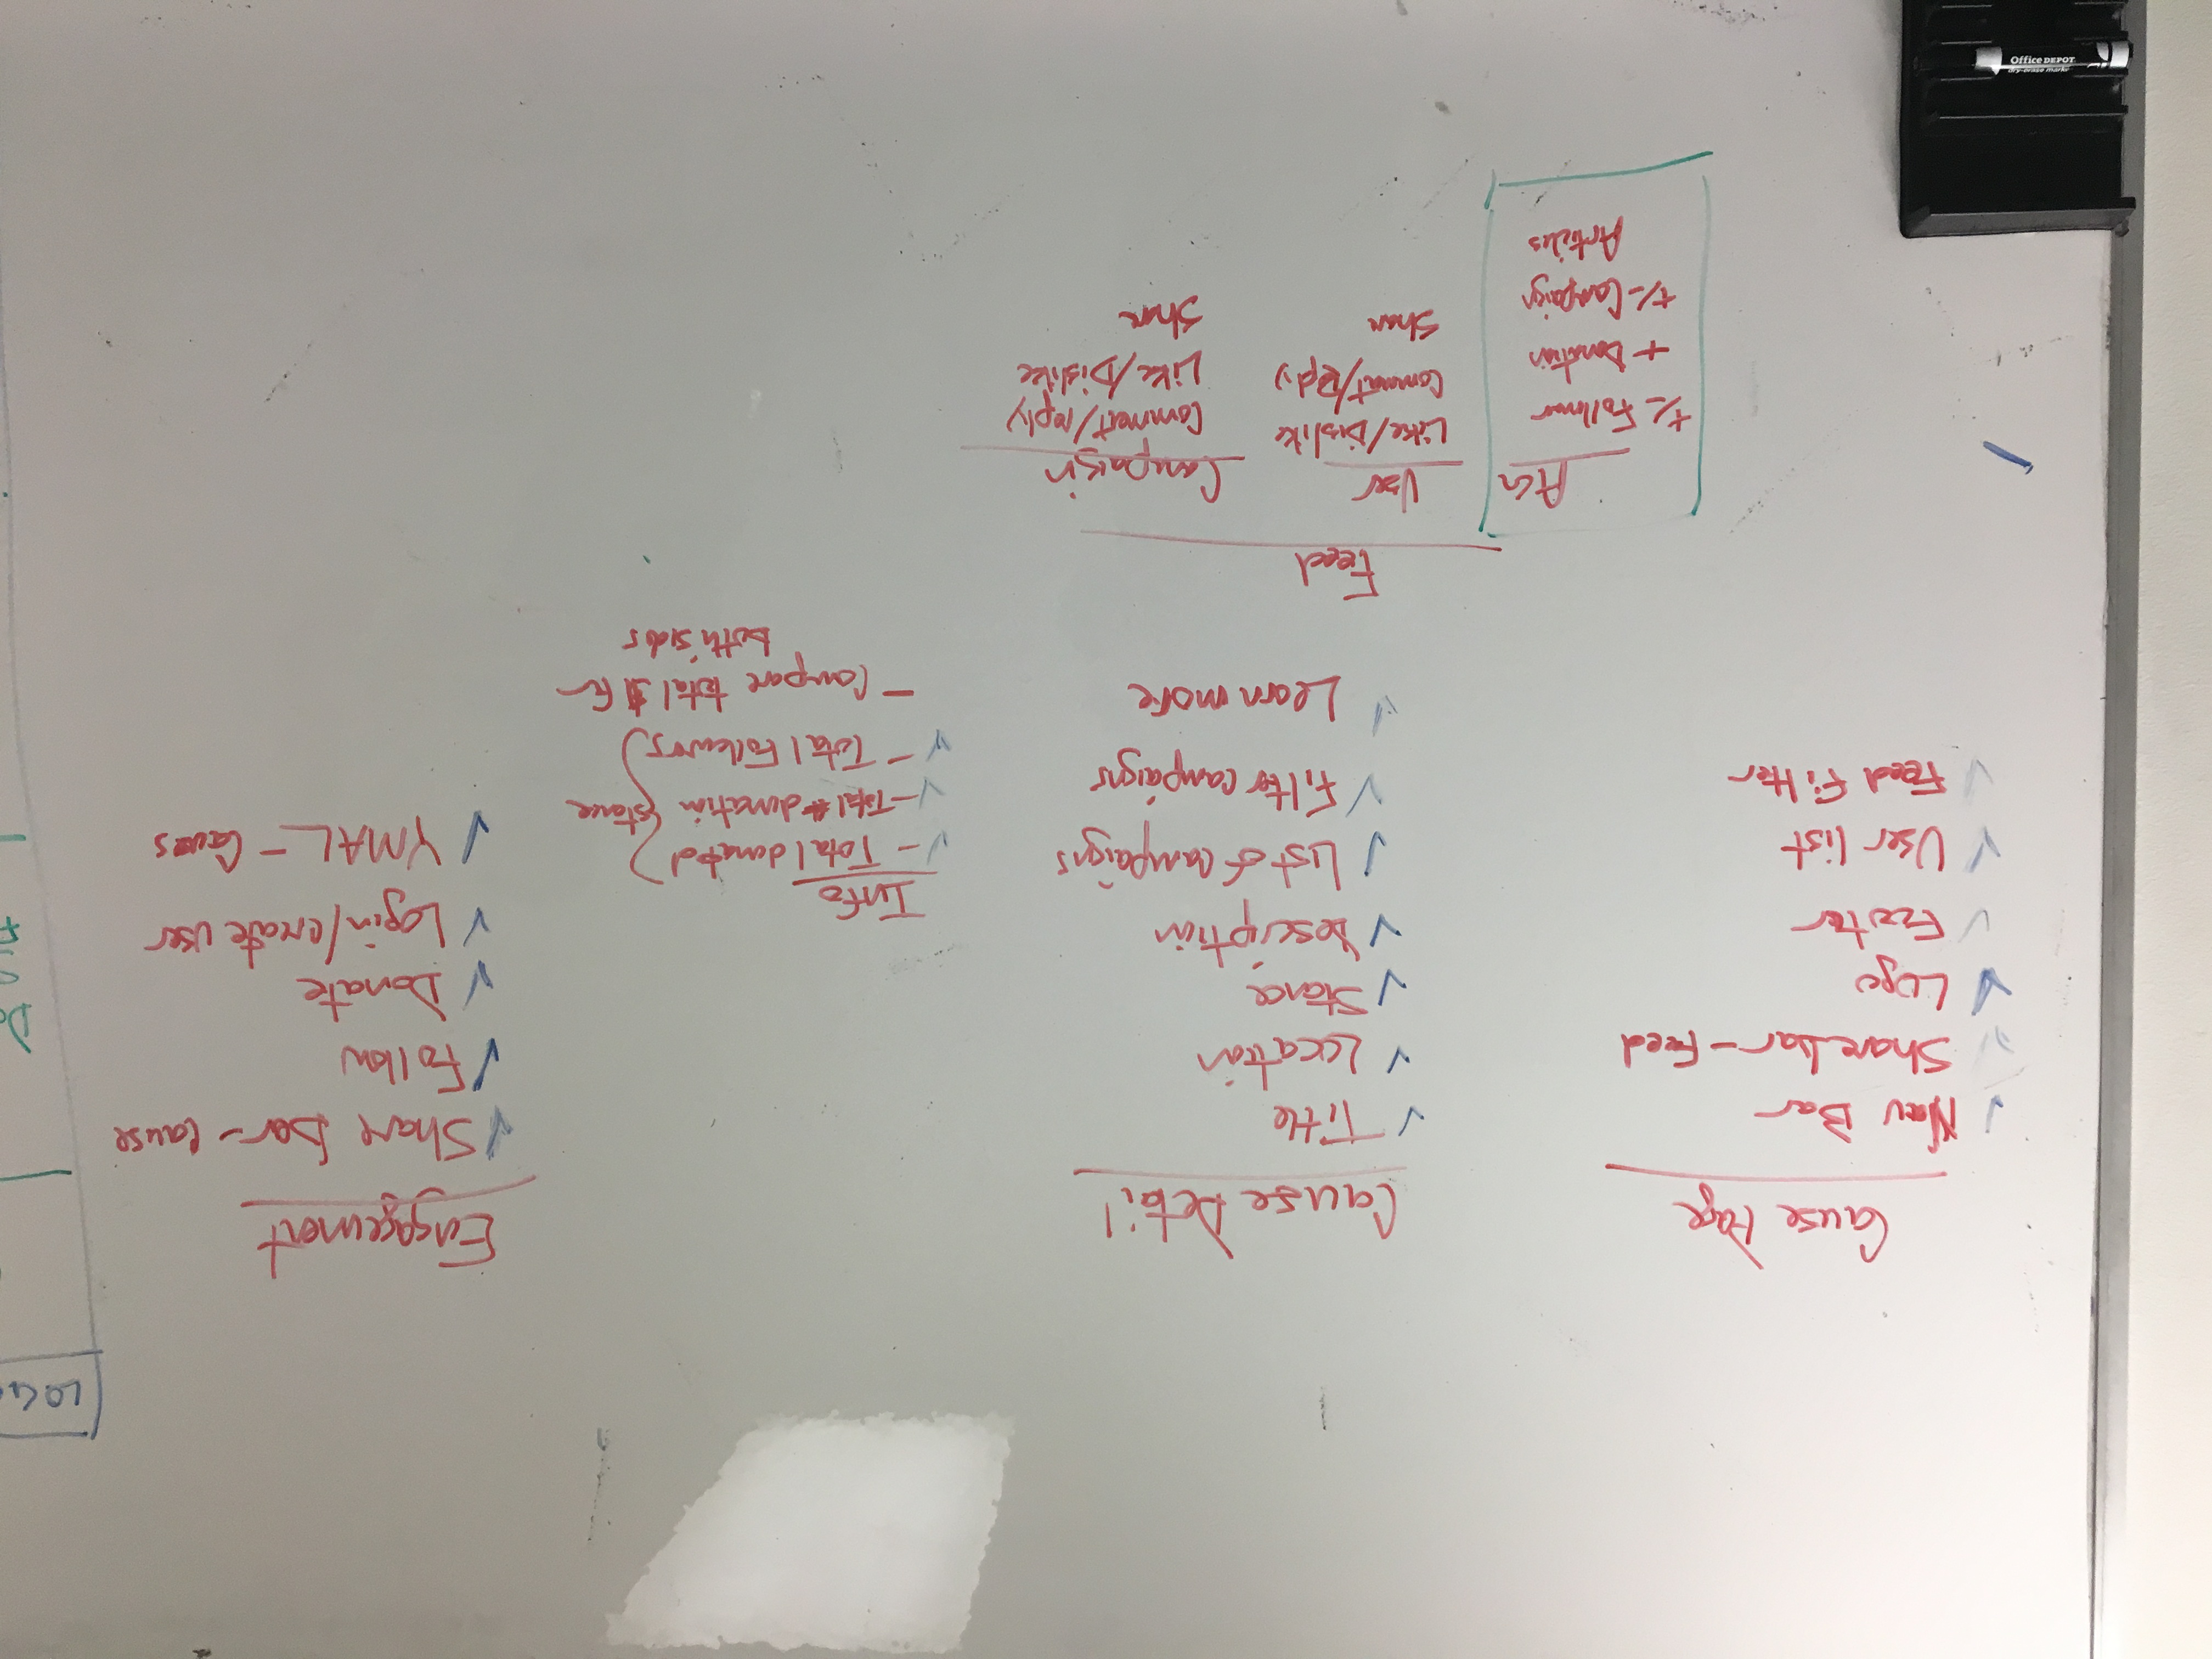 Cause Page
Nav Bar
Sharebar - Feed
Logo
Footer
User list
Feed Filter
Cause Detail
Title
Location
Stance
Description
List of campaigns
Filter campaigns
Learn more
Info
- Total donated
- Total # donation
- Total Followers
stance
- Compare total $ For
both sides
Engagement
Share bar - cause
Follow
Donate
Login/create user
YMAL - Causes
Feed
+/- Follower
+ Donation
+/- Campaign
Articles
User
Like/Dislike
Comment/Reply
Share
Campaign
Comment/reply
Like/Dislike
Share
Office DEPOT
dry-erase marker